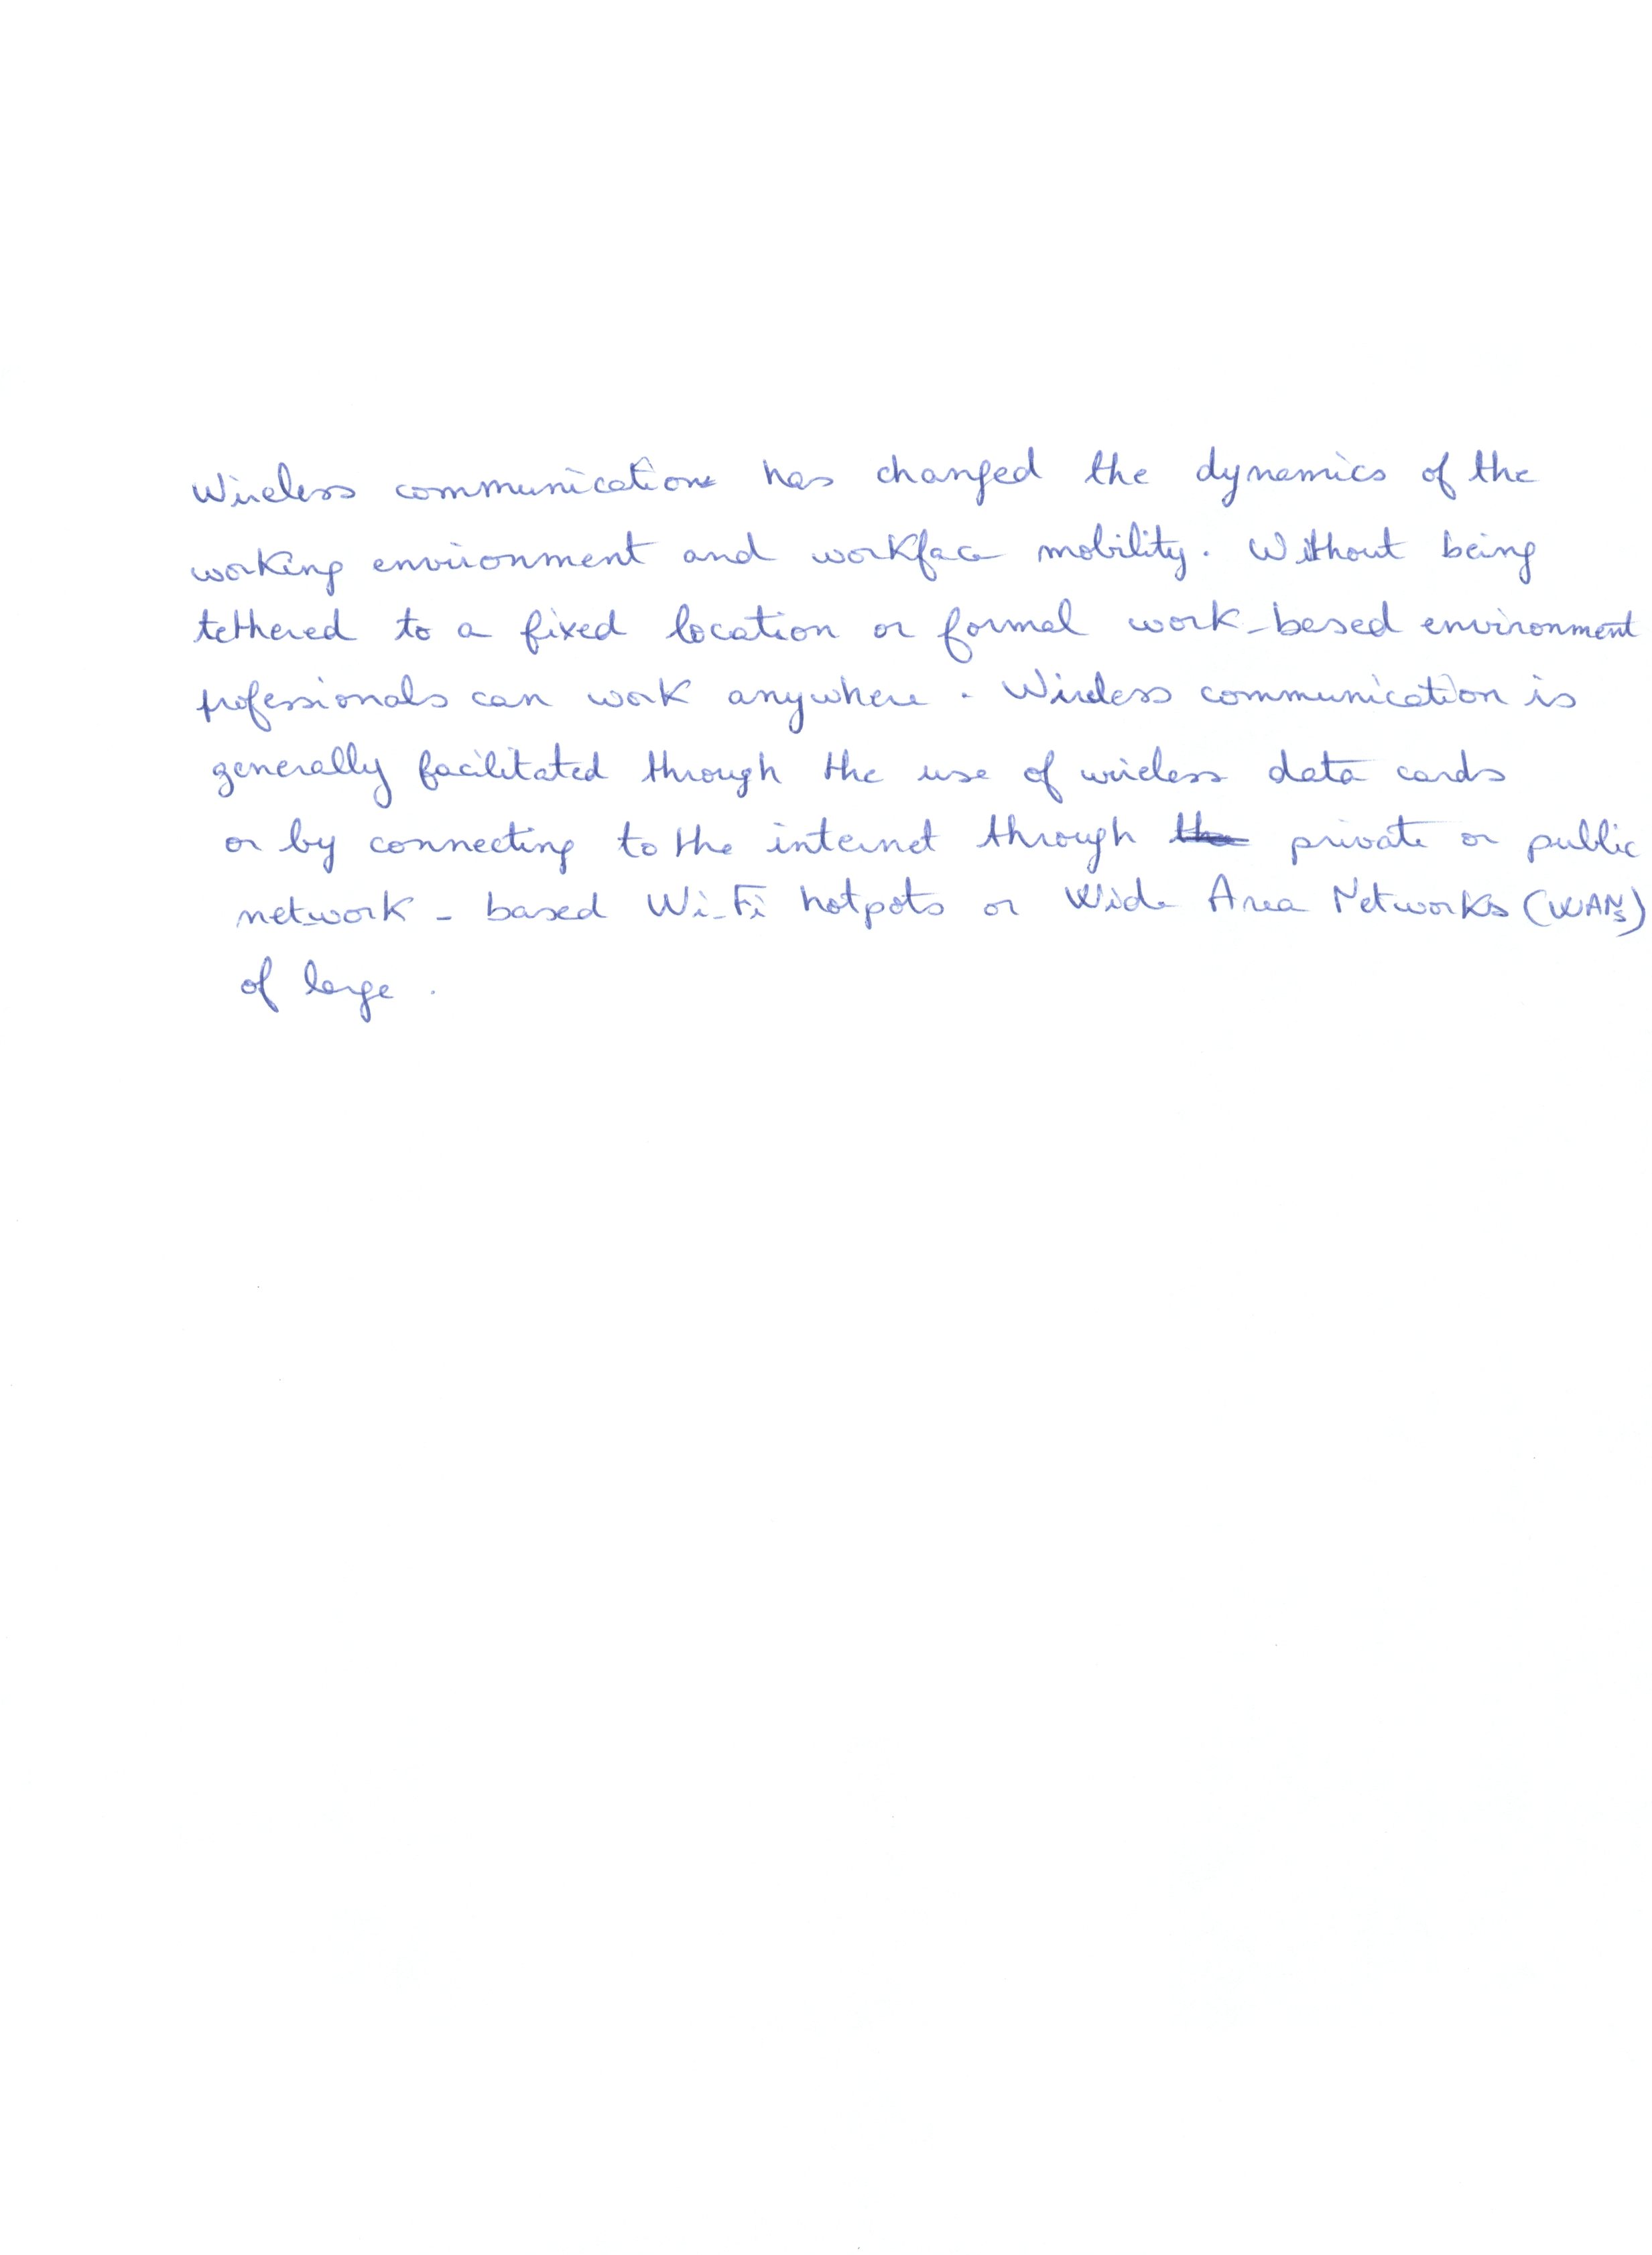 Wireless communication has changed the dynamics of the
working environment and workface mobility. Without being
tethered to a fixed location or formal work-based environment
professionals can work anywhere. Wireless communication is
generally facilitated through the use of wireless data cards
or by connecting to the internet through private or public
network-based Wi-Fi hotpots or Wide Area Networks (WANs)
of large.